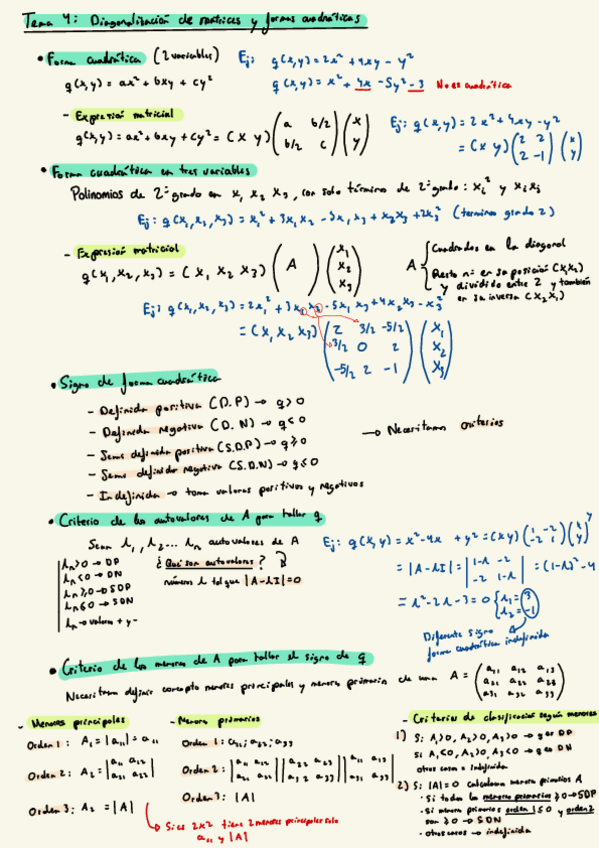 Tema 4: Diagonalización de matrices y formas cuadráticas
• Forma cuadrática (2 variables)
Ej: q(x,y) = 2x² + 4xy - y²
q(x,y) = ax² + bxy + cy²
q(x,y) = x² + 4x - 5y² - 3 No es cuadrática
- Expresión matricial
q(x,y) = ax² + bxy + cy² = (x y) (a b/2 b/2 c) (x y)
Ej: q(x,y) = 2x² + 4xy - y²
= (x y) (2 2 2 -1) (x y)
• Forma cuadrática en tres variables
Polinomios de 2º grado en x₁ x₂ x₃, con solo términos de 2º grado: xᵢ² y xᵢxⱼ
Ej: q(x₁,x₂,x₃) = x₁² + 3x₁x₂ - 5x₁x₃ + x₂x₃ + 2x₃² (términos grado 2)
- Expresión matricial
q(x₁,x₂,x₃) = (x₁ x₂ x₃) ( A ) (x₁ x₂ x₃)
A { Cuadrados en la diagonal
Resto nº en su posición (x₁x₂)
y dividido entre 2 y también
en su inversa (x₂x₁)
Ej: q(x₁,x₂,x₃) = 2x₁² + 3x₁x₂ - 5x₁x₃ + 4x₂x₃ - x₃²
= (x₁ x₂ x₃) (2 3/2 -5/2
3/2 0 2
-5/2 2 -1) (x₁ x₂ x₃)
• Signo de forma cuadrática
- Definida positiva (D.P) → q > 0
- Definida negativa (D.N) → q < 0
- Semi definida positiva (S.D.P) → q ≥ 0
→ Necesitamos criterios
- Semi definida negativa (S.D.N) → q ≤ 0
- Indefinida → toma valores positivos y negativos
• Criterio de los autovalores de A para hallar q
Sean λ₁, λ₂... λₙ autovalores de A
Ej: q(x,y) = x² - 4x + y² = (x y) (1 -2 -2 1) (x y)
λₙ > 0 → DP
λₙ < 0 → DN
λₙ ≥ 0 → SDP
λₙ ≤ 0 → SDN
λₙ → valores + y -
¿Qué son autovalores?
números λ tal que |A - λI| = 0
= |A - λI| = |1-λ -2 -2 1-λ| = (1-λ)² - 4
= λ² - 2λ - 3 = 0 { λ₁ = 3 λ₂ = -1
Diferente signo
forma cuadrática indefinida
• Criterio de los menores de A para hallar el signo de q
Necesitam definir concepto menores principales y menores primarios de una A = (a₁₁ a₁₂ a₁₃
a₂₁ a₂₂ a₂₃
a₃₁ a₃₂ a₃₃)
- Menores principales
Orden 1: A₁ = |a₁₁| = a₁₁
Orden 2: A₂ = |a₁₁ a₁₂ a₂₁ a₂₂|
Orden 3: A₂ = |A|
↳ Si es 2x2 tiene 2 menores principales solo
a₁₁ y |A|
- Menores primarios
Orden 1: a₁₁; a₂₂; a₃₃
Orden 2: |a₁₁ a₁₂ a₂₁ a₂₂| |a₂₂ a₂₃ a₃₂ a₃₃| |a₁₁ a₁₃ a₃₁ a₃₃|
Orden 3: |A|
- Criterios de clasificación según menores
1) Si A₁>0, A₂>0, A₃>0 → q es DP
Si A₁<0, A₂>0, A₃<0 → q es DN
otros casos = indefinida
2) Si |A| = 0 calculamos menores primarios A
• Si todos los menores primarios ≥ 0 → SDP
• Si menores primarios orden 1 ≤ 0 y orden 2
son ≥ 0 → SDN
• otros casos → indefinida